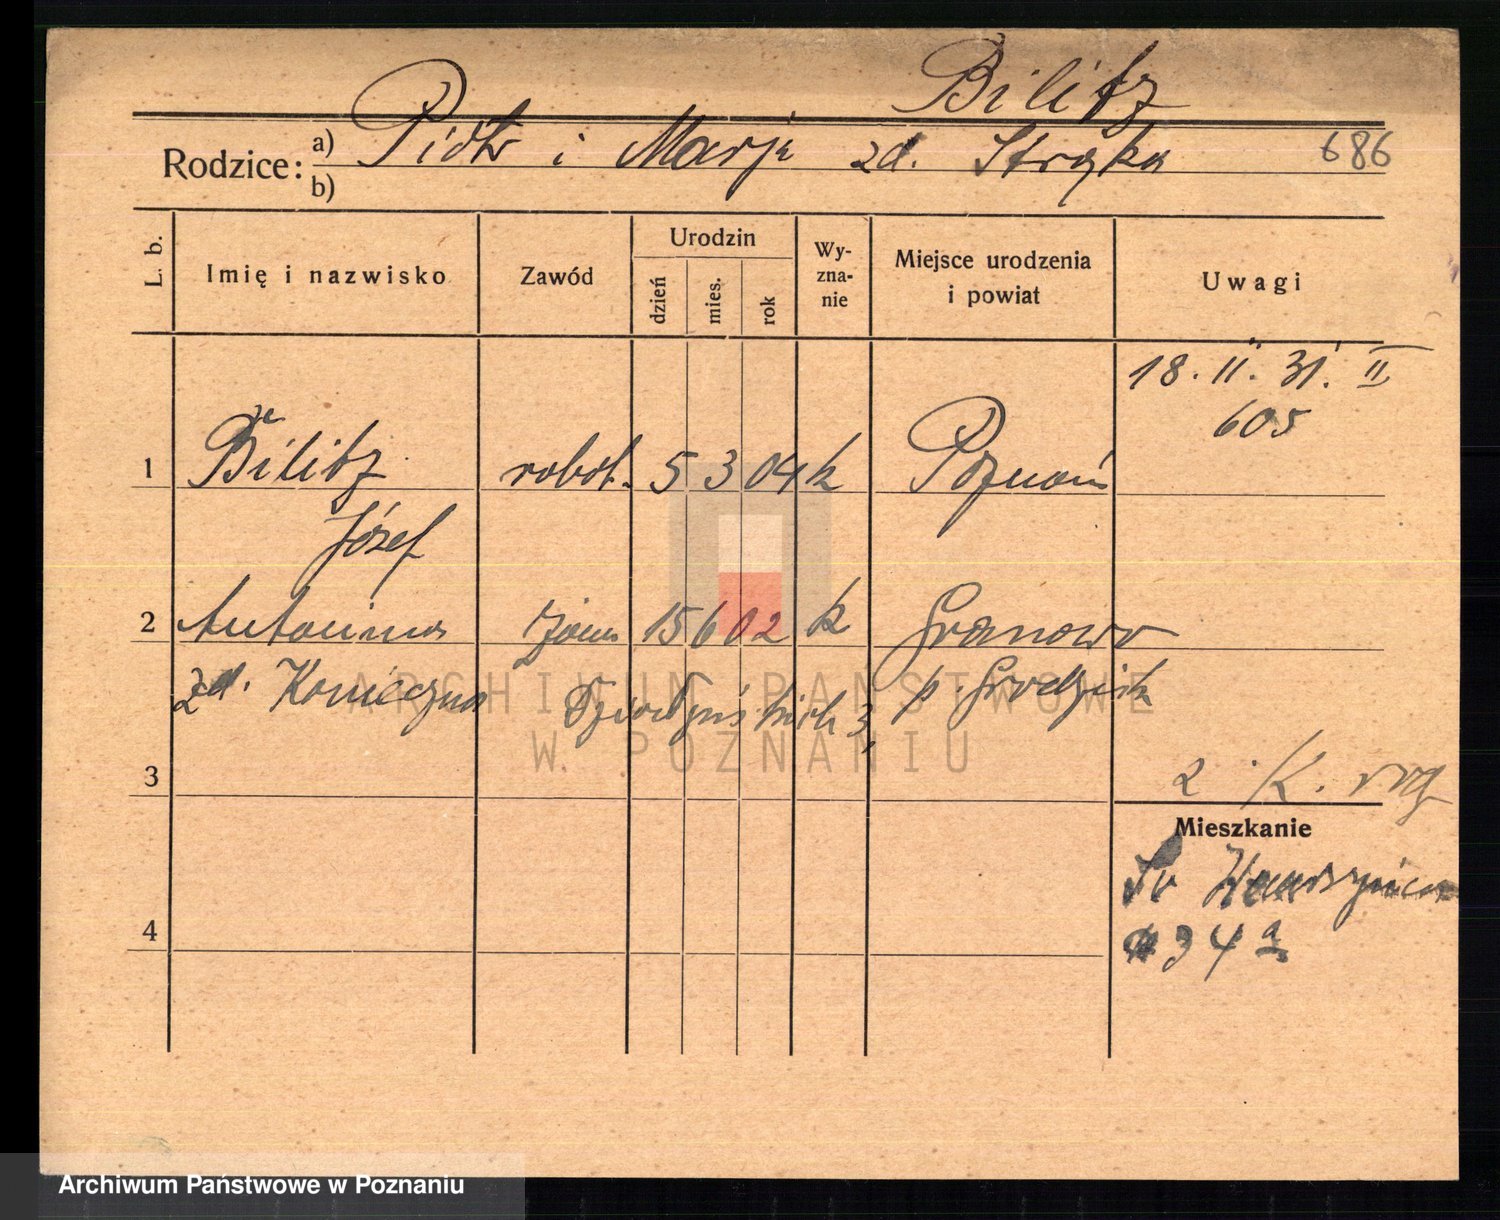 Bilitz
Rodzice: a) Piotr i Marja zd. Stryka 686
b)
L. b. Imię i nazwisko Zawód Urodzin dzień mies. rok Wyzna-nie Miejsce urodzenia i powiat Uwagi
18. 11. 31. II
605
1 Bilitz robot. 5 3 04 k Poznań
Józef
2 Antonina żona 15 6 02 k Granowo
zd. Konieczna p. Grodzisk
3
2 K.
Mieszkanie
Św Wawrzyńca
34 a
4
ARCHIWUM PAŃSTWOWE
W POZNANIU
Archiwum Państwowe w Poznaniu